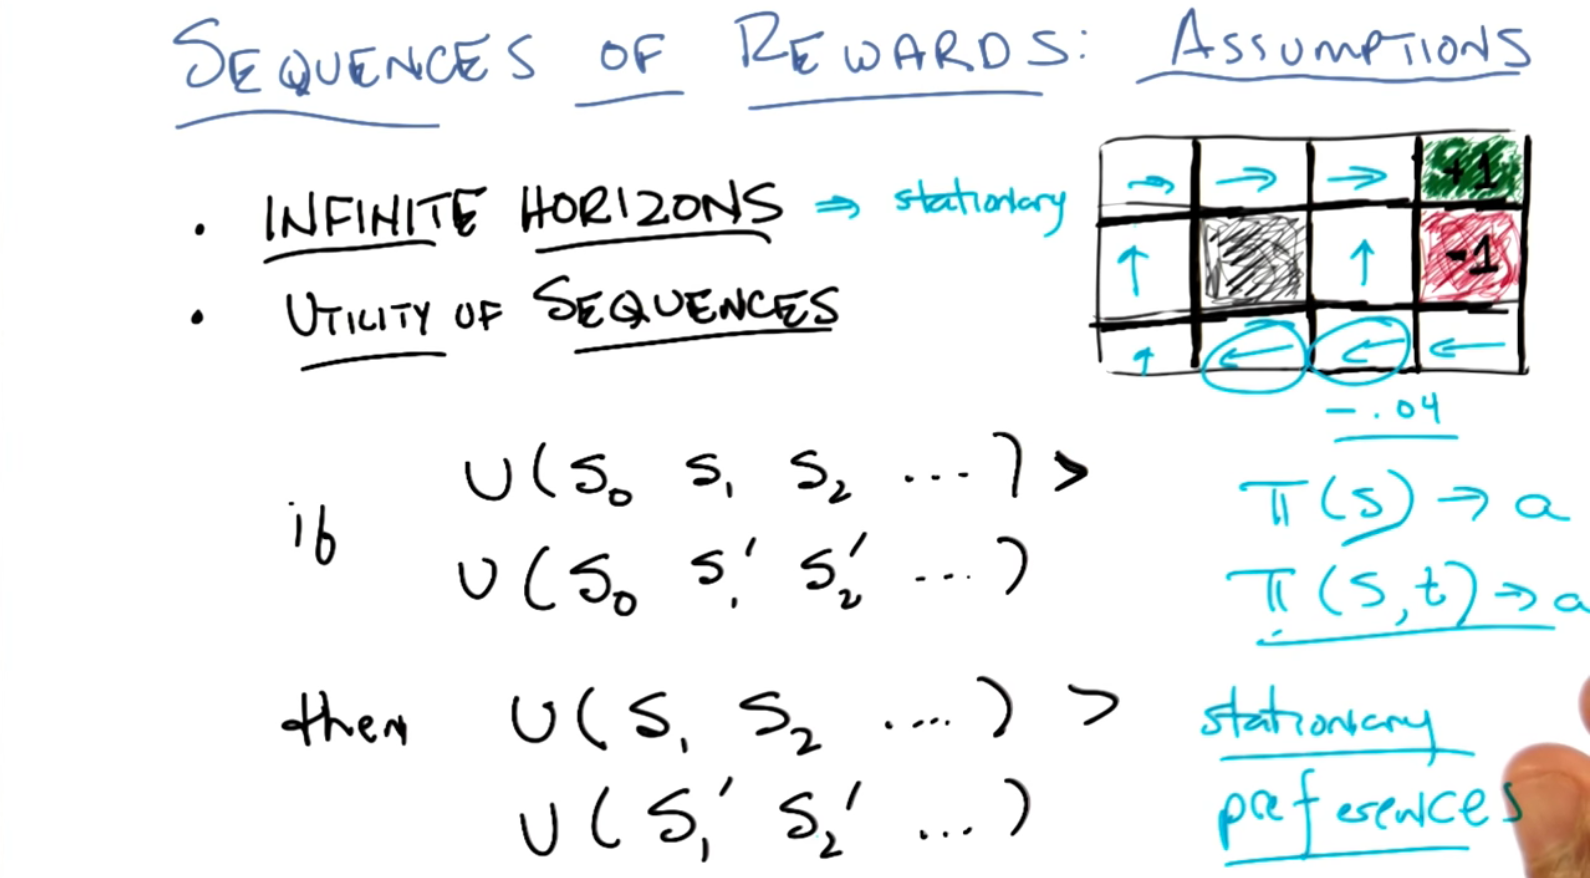 SEQUENCES OF REWARDS: ASSUMPTIONS
• INFINITE HORIZONS ⇒ stationary
• UTILITY OF SEQUENCES
→ → → +1
↑ ↑ -1
↑ ← ← ←
-.04
if U(S₀ S₁ S₂ ....) >
U(S₀ S₁' S₂' ...)
π(s) → a
π(s,t) → a
then U(S₁ S₂ ....) >
U(S₁' S₂' ...)
stationary
preferences